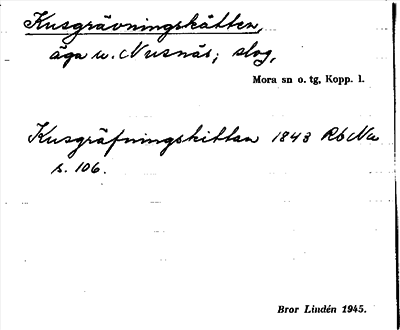 Kusgrävningskätten,
äga u. Nusnäs; slog,
Mora sn o. tg, Kopp. l.
Kusgräfningskittan 1843 Rb Na
s. 106.
Bror Lindén 1945.